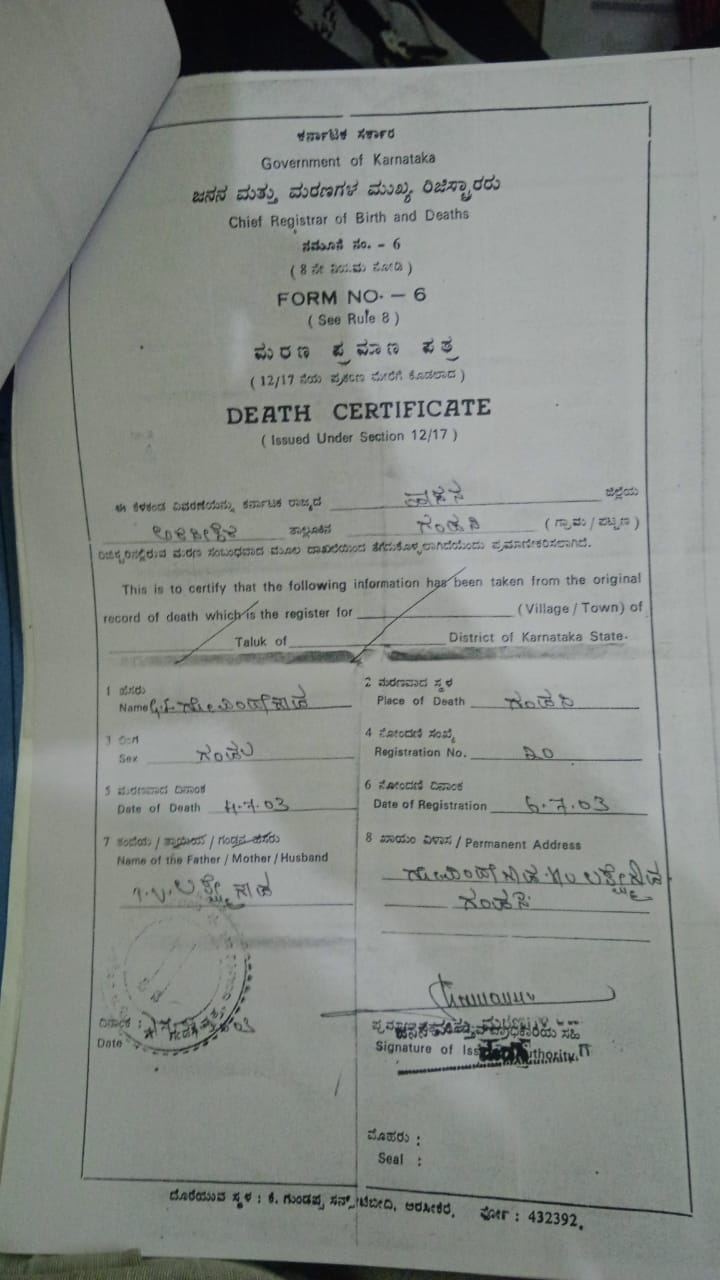 ಕರ್ನಾಟಕ ಸರ್ಕಾರ
Government of Karnataka
ಜನನ ಮತ್ತು ಮರಣಗಳ ಮುಖ್ಯ ರಿಜಿಸ್ಟ್ರಾರರು
Chief Registrar of Birth and Deaths
ನಮೂನೆ ನಂ. - 6
( 8 ನೇ ನಿಯಮ ನೋಡಿ )
FORM NO. - 6
( See Rule 8 )
ಮರಣ ಪ್ರಮಾಣ ಪತ್ರ
( 12/17 ನೆಯ ಪ್ರಕರಣ ಮೇರೆಗೆ ಕೊಡಲಾದ )
DEATH CERTIFICATE
( Issued Under Section 12/17 )
ಈ ಕೆಳಕಂಡ ವಿವರಣೆಯನ್ನು ಕರ್ನಾಟಕ ರಾಜ್ಯದ ಹಾಸನ ಜಿಲ್ಲೆಯ
ಅರಸೀಕೆರೆ ತಾಲ್ಲೂಕಿನ ಗಂಡಸಿ ( ಗ್ರಾಮ / ಪಟ್ಟಣ )
ರಿಜಿಸ್ಟರಿನಲ್ಲಿರುವ ಮರಣ ಸಂಬಂಧವಾದ ಮೂಲ ದಾಖಲೆಯಿಂದ ತೆಗೆದುಕೊಳ್ಳಲಾಗಿದೆಯೆಂದು ಪ್ರಮಾಣೀಕರಿಸಲಾಗಿದೆ.
This is to certify that the following information has been taken from the original
record of death which is the register for (Village / Town) of
Taluk of District of Karnataka State.
1 ಹೆಸರು
Name
2 ಮರಣವಾದ ಸ್ಥಳ
Place of Death ಗಂಡಸಿ
3 ಲಿಂಗ
Sex ಗಂಡು
4 ನೋಂದಣಿ ಸಂಖ್ಯೆ
Registration No. 20
5 ಮರಣವಾದ ದಿನಾಂಕ
Date of Death 4.7.03
6 ನೋಂದಣಿ ದಿನಾಂಕ
Date of Registration 6.7.03
7 ತಂದೆಯ / ತಾಯಿಯ / ಗಂಡನ ಹೆಸರು
Name of the Father / Mother / Husband
8 ಖಾಯಂ ವಿಳಾಸ / Permanent Address
ಗಂಡಸಿ
ದಿನಾಂಕ :
Date
Signature of
ಮೊಹರು :
Seal :
ದೊರೆಯುವ ಸ್ಥಳ : ಕೆ. ಗುಂಡಪ್ಪ ಸನ್ಸ್, ಅರಸೀಕೆರೆ. ಫೋನ್ : 432392.